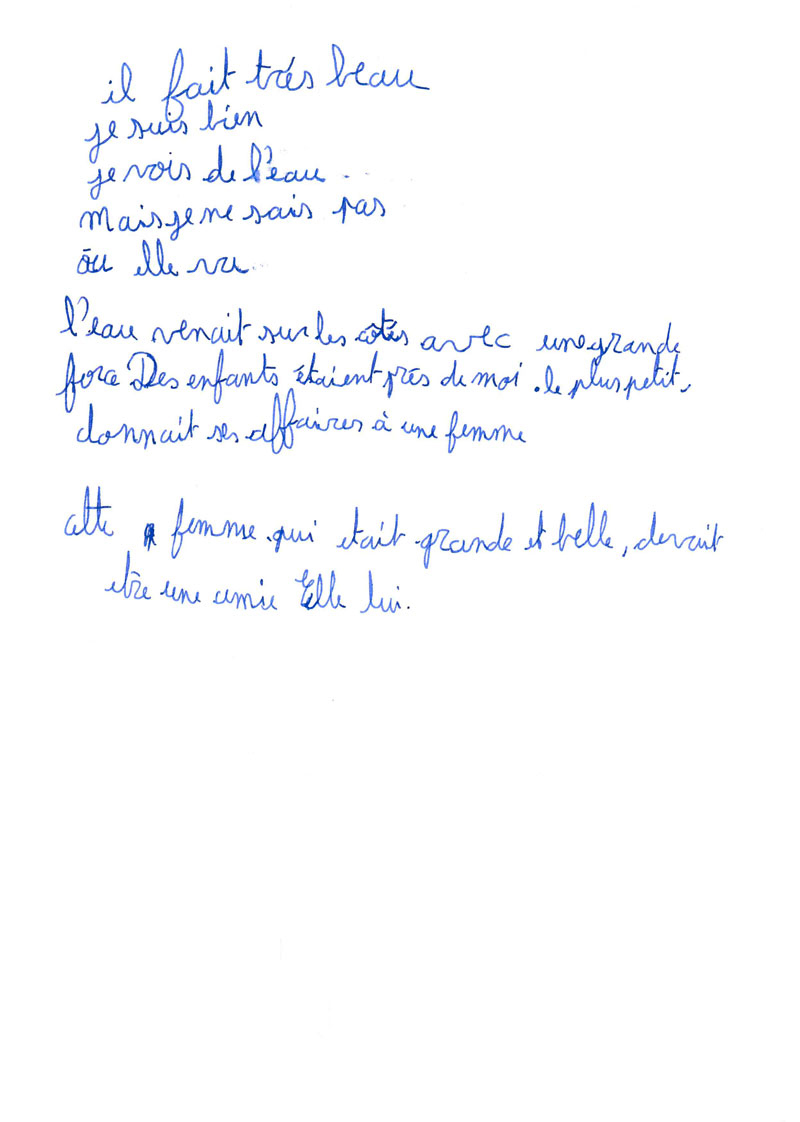 il fait trés beau
je suis bien
je vois de l'eau.
mais je ne sais pas
ou elle va.
l'eau venait sur les côtés avec une grande
force Des enfants étaient prés de moi. le plus petit,
donnait ses affaires à une femme
cette femme qui etait grande et belle, devait
etre une amie Elle lui.